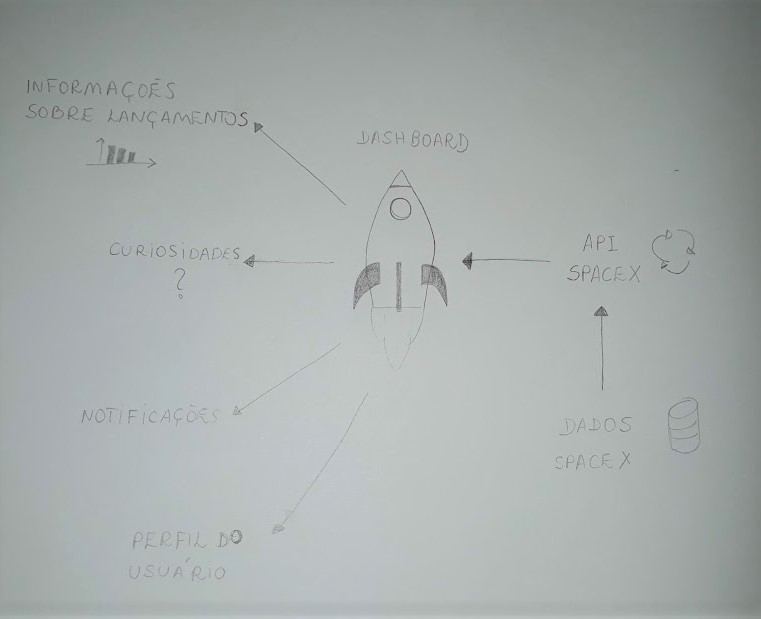 INFORMAÇOẼS
SOBRE LANÇAMENTOS
DASHBOARD
CURIOSIDADES
?
API
SPACEX
NOTIFICAÇÕES
DADOS
SPACEX
PERFIL DO
USUÁRIO